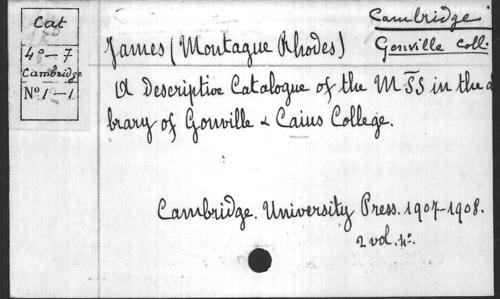 Cat
4º — 7
Cambridge
Nº 1 — 1
Cambridge
Gonville Coll.
James (Montague Rhodes)
A Descriptive Catalogue of the MSS in the
brary of Gonville & Caius College.
Cambridge. University Press. 1907-1908.
2 vol. 4º.